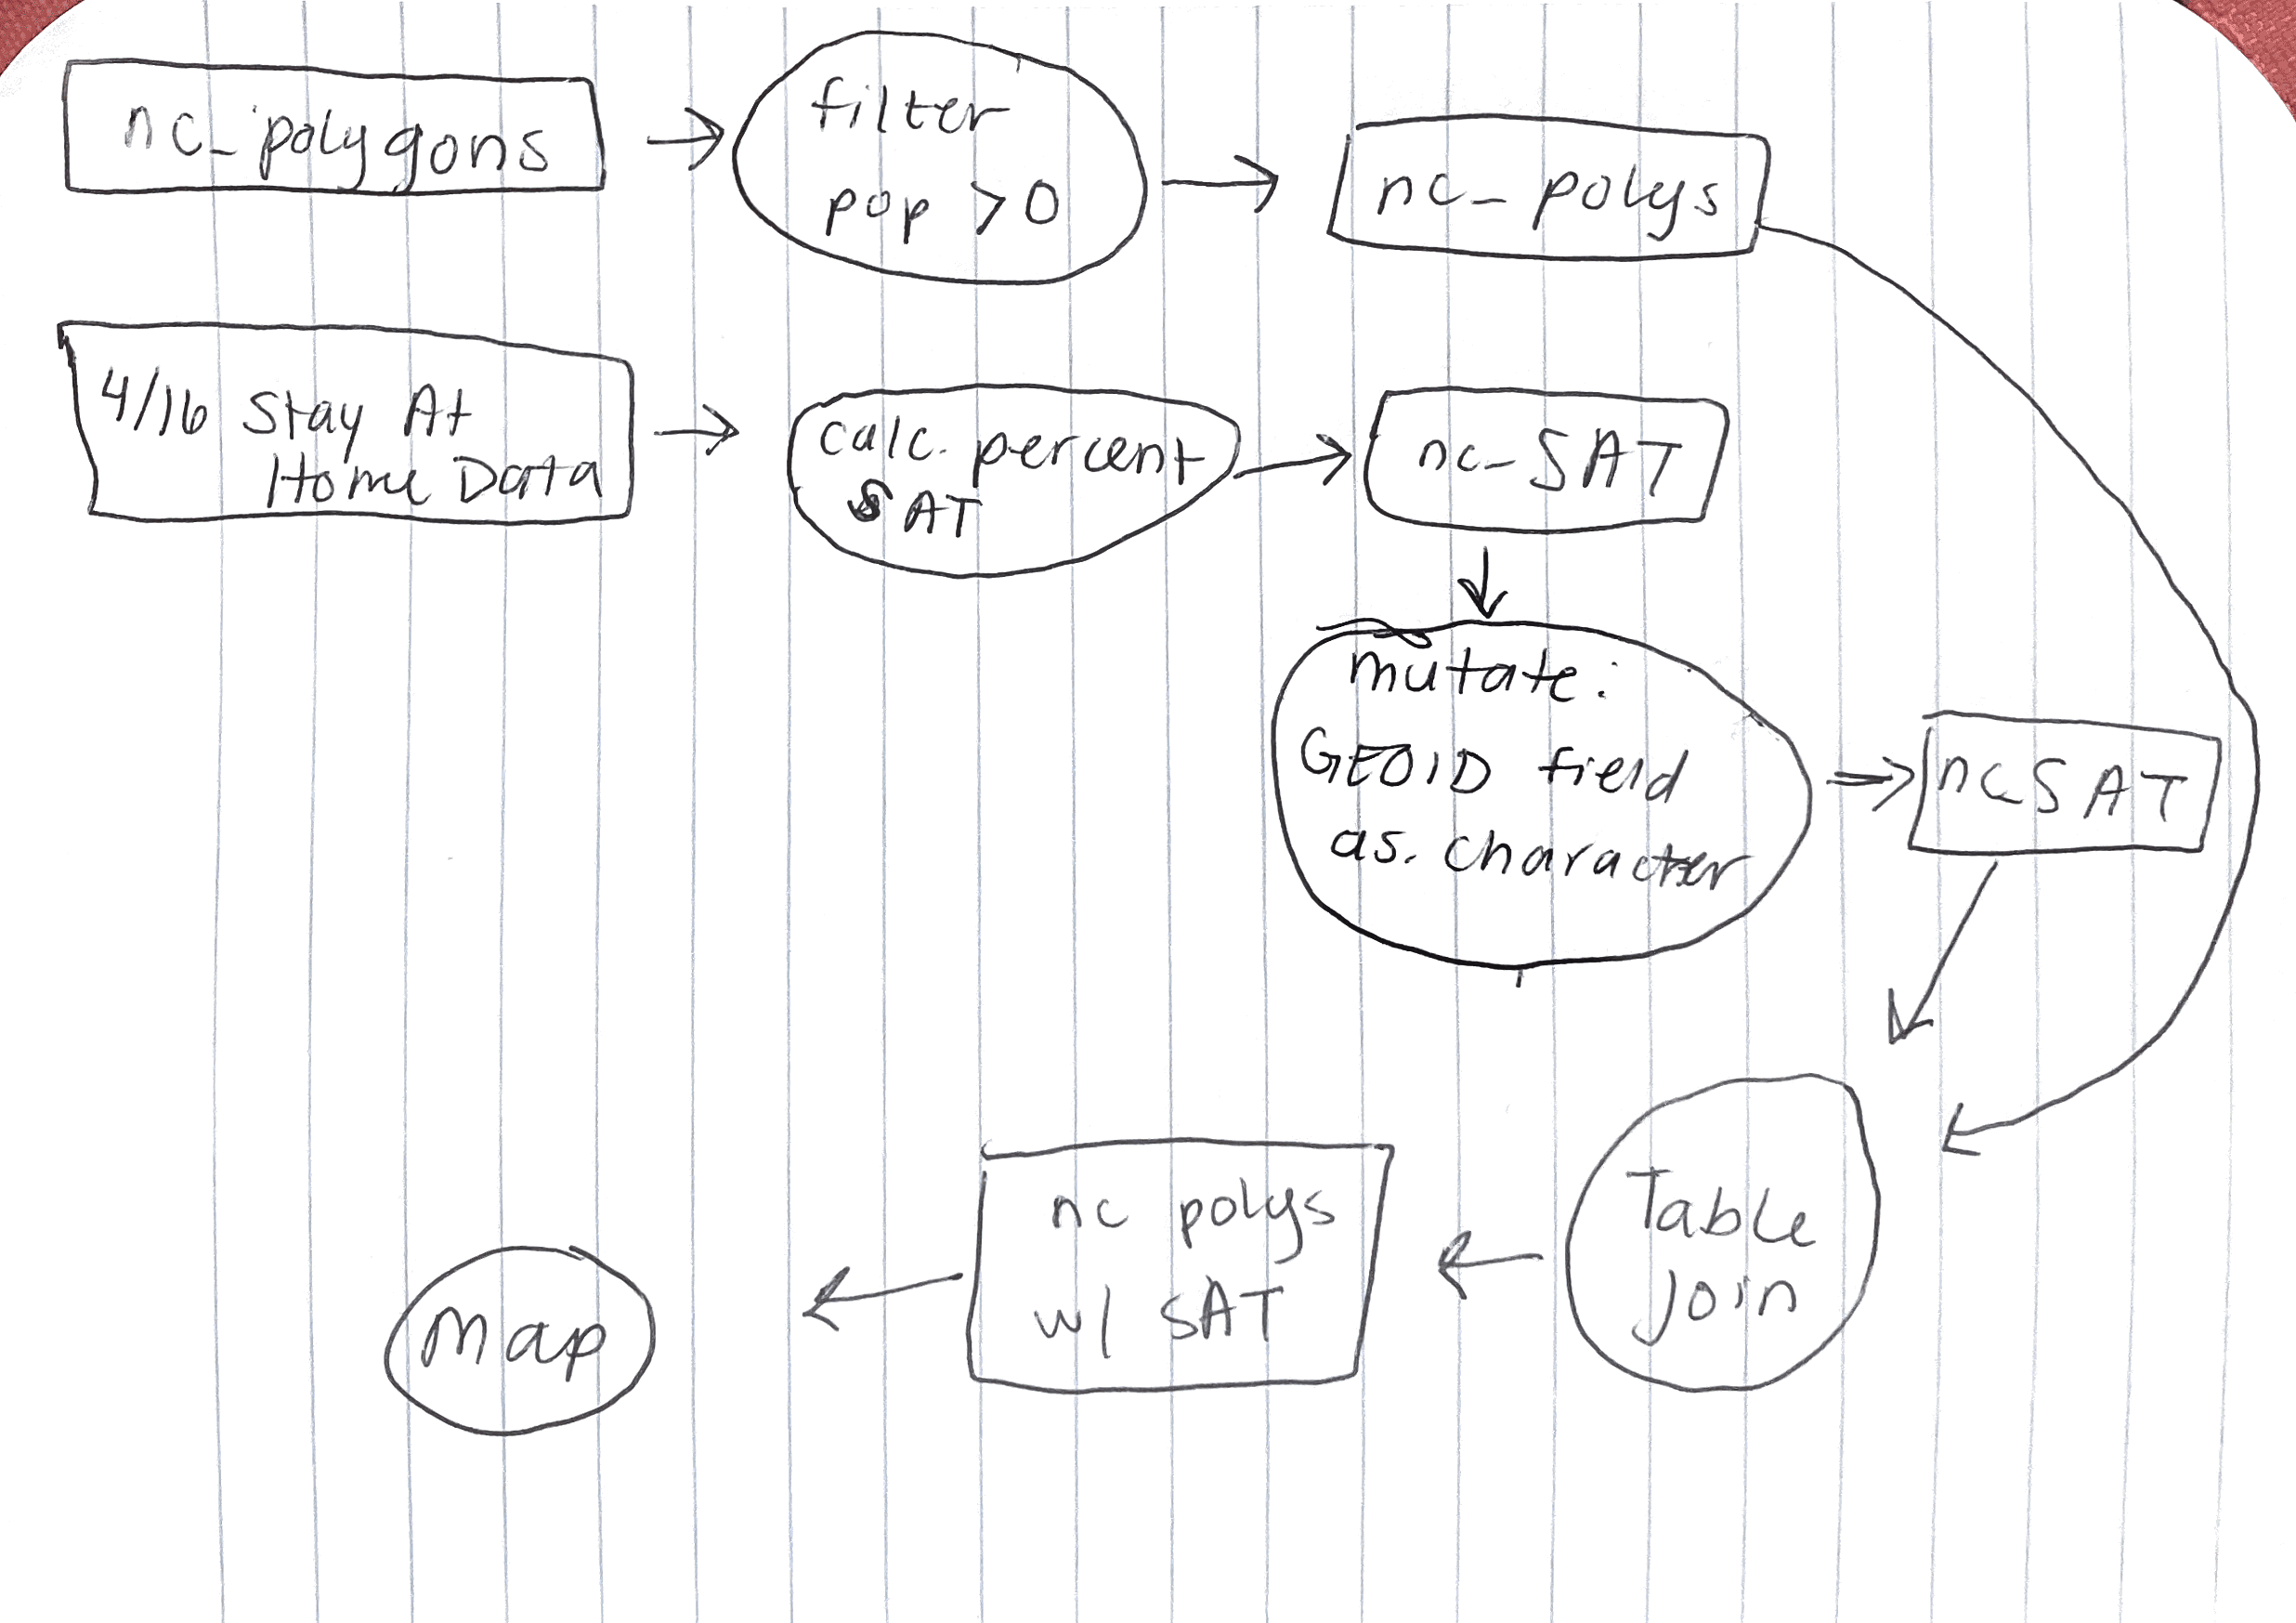 nc_polygons
filter
pop > 0
nc_polys
4/16 Stay At
Home Data
calc. percent
SAT
nc_SAT
mutate:
GEOID field
as. character
nc_SAT
Table
Join
nc polys
w/ SAT
Map